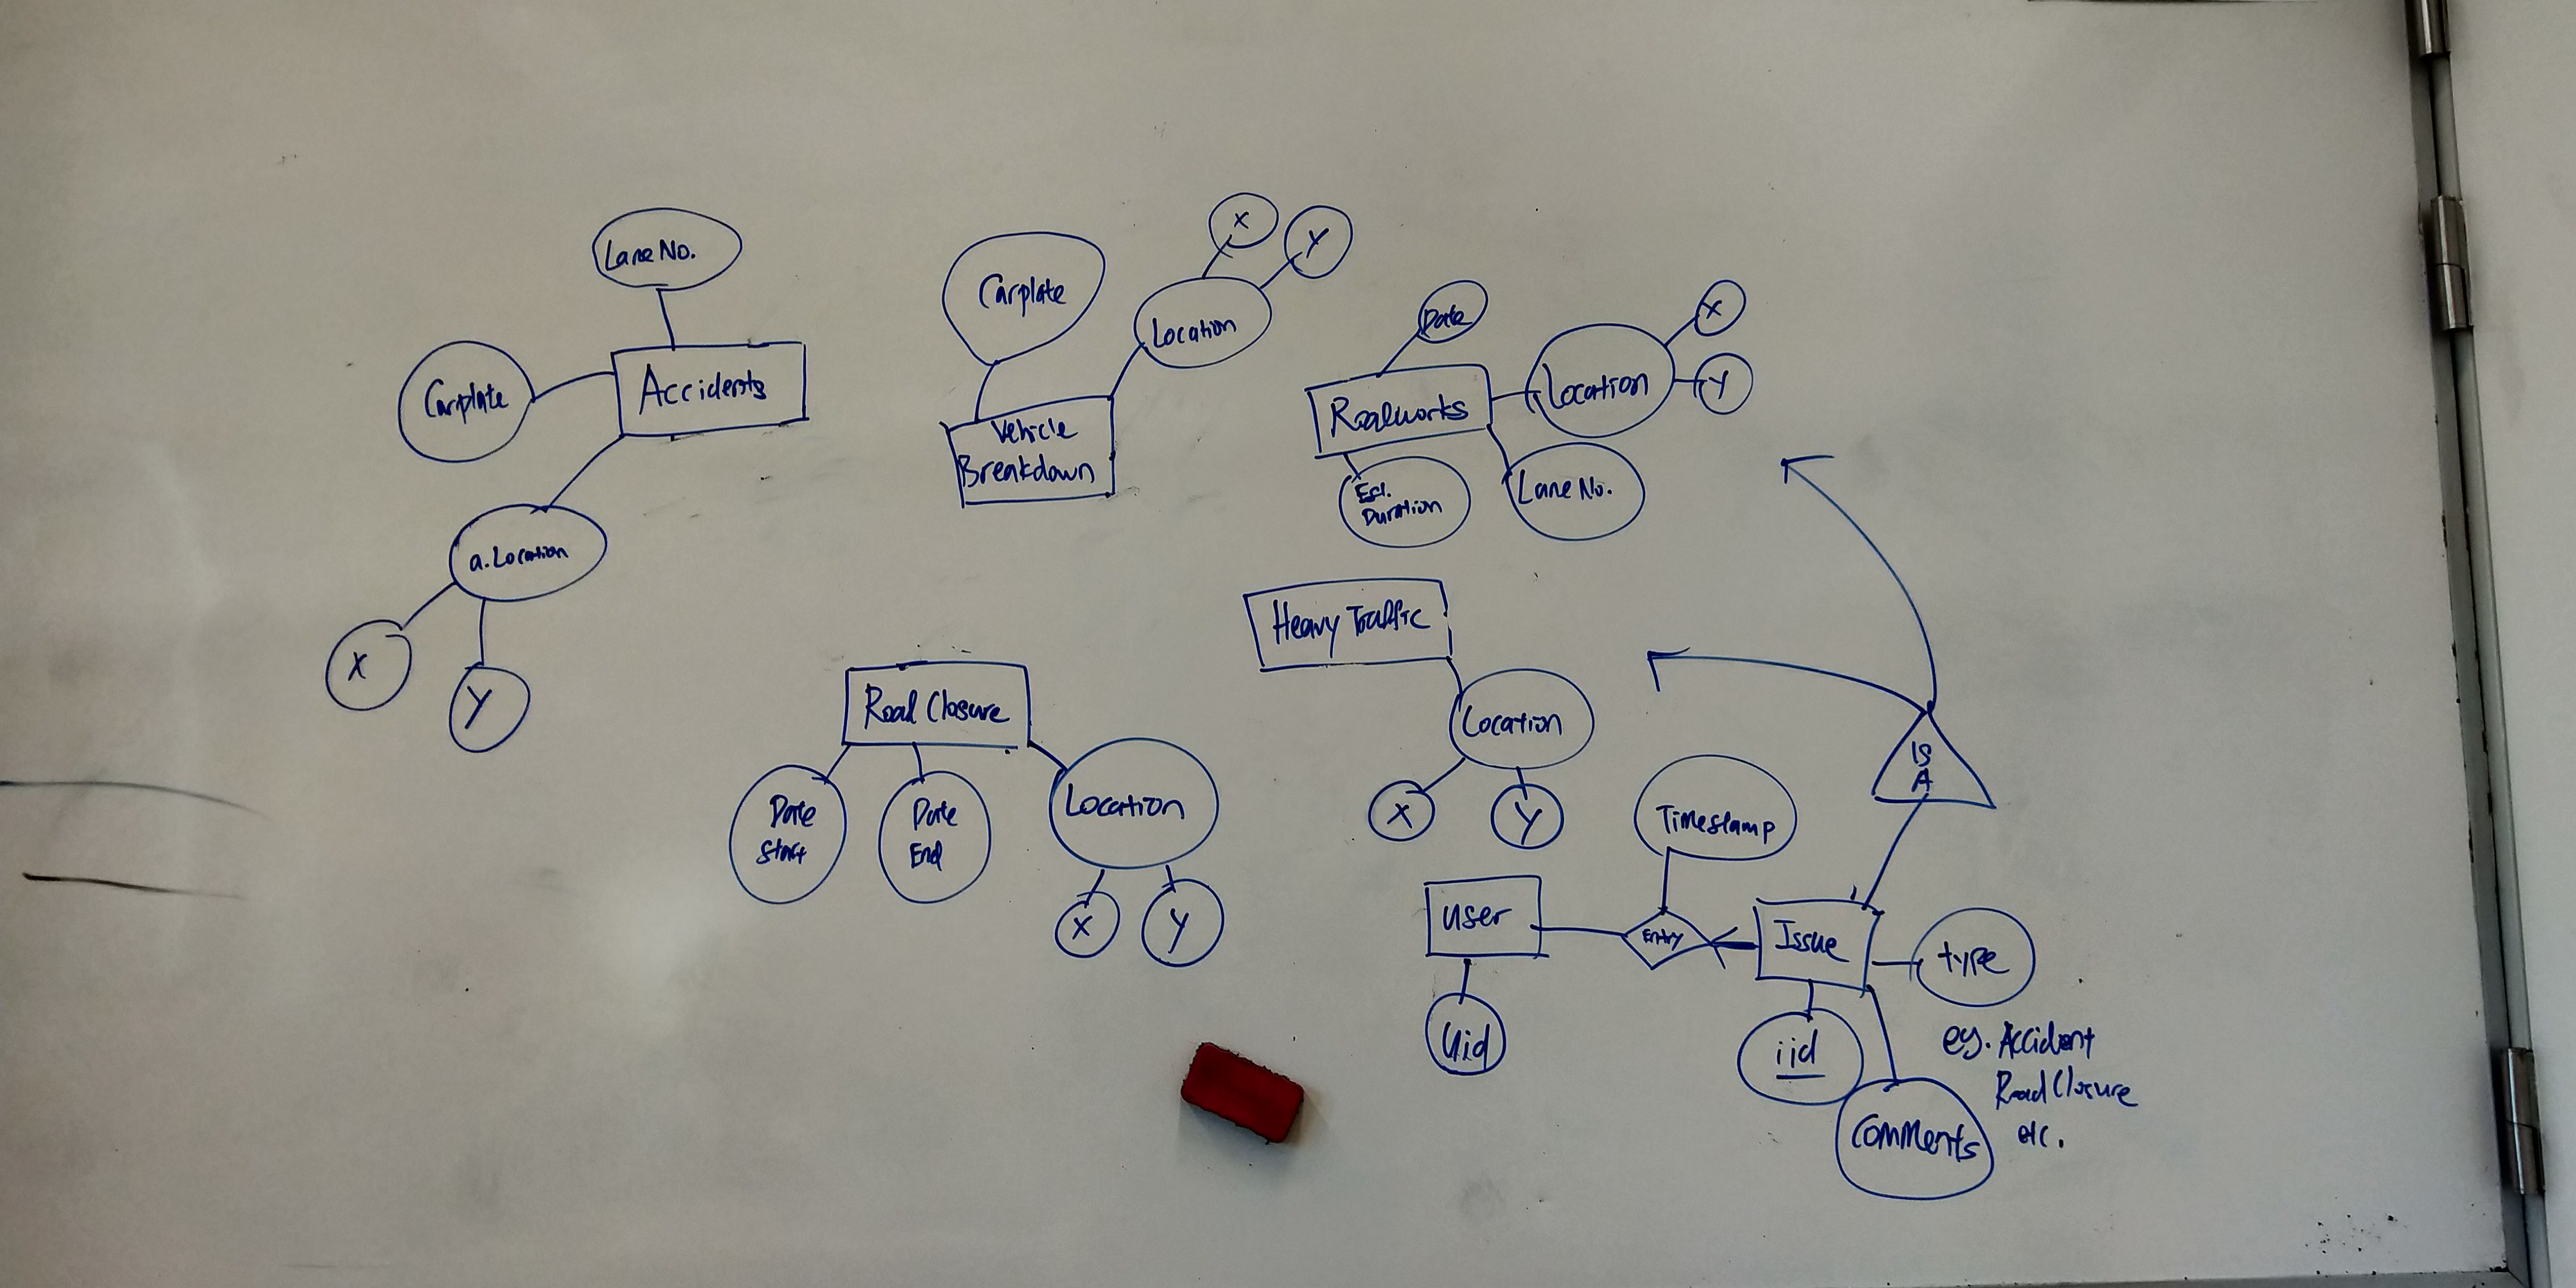 Lane No.
Carplate
Accidents
a. Location
X
Y
Carplate
X
Y
Location
Vehicle
Breakdown
Date
X
Location
Y
Roadworks
Est.
Duration
Lane No.
Heavy Traffic
Location
X
Y
Road Closure
Date
Start
Date
End
Location
X
Y
IS
A
Timestamp
User
Entry
Issue
type
Uid
iid
Comments
eg. Accident
Road Closure
etc.